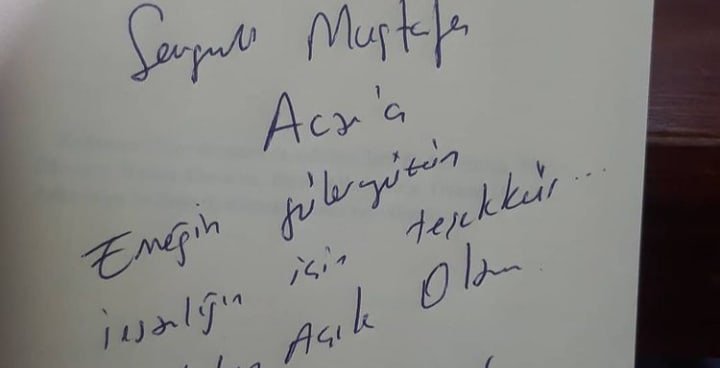 Sevgili Mustafa
Acar'a
Emeğin güleryüzün
insanlığın için teşekkür...
Açık Olsun